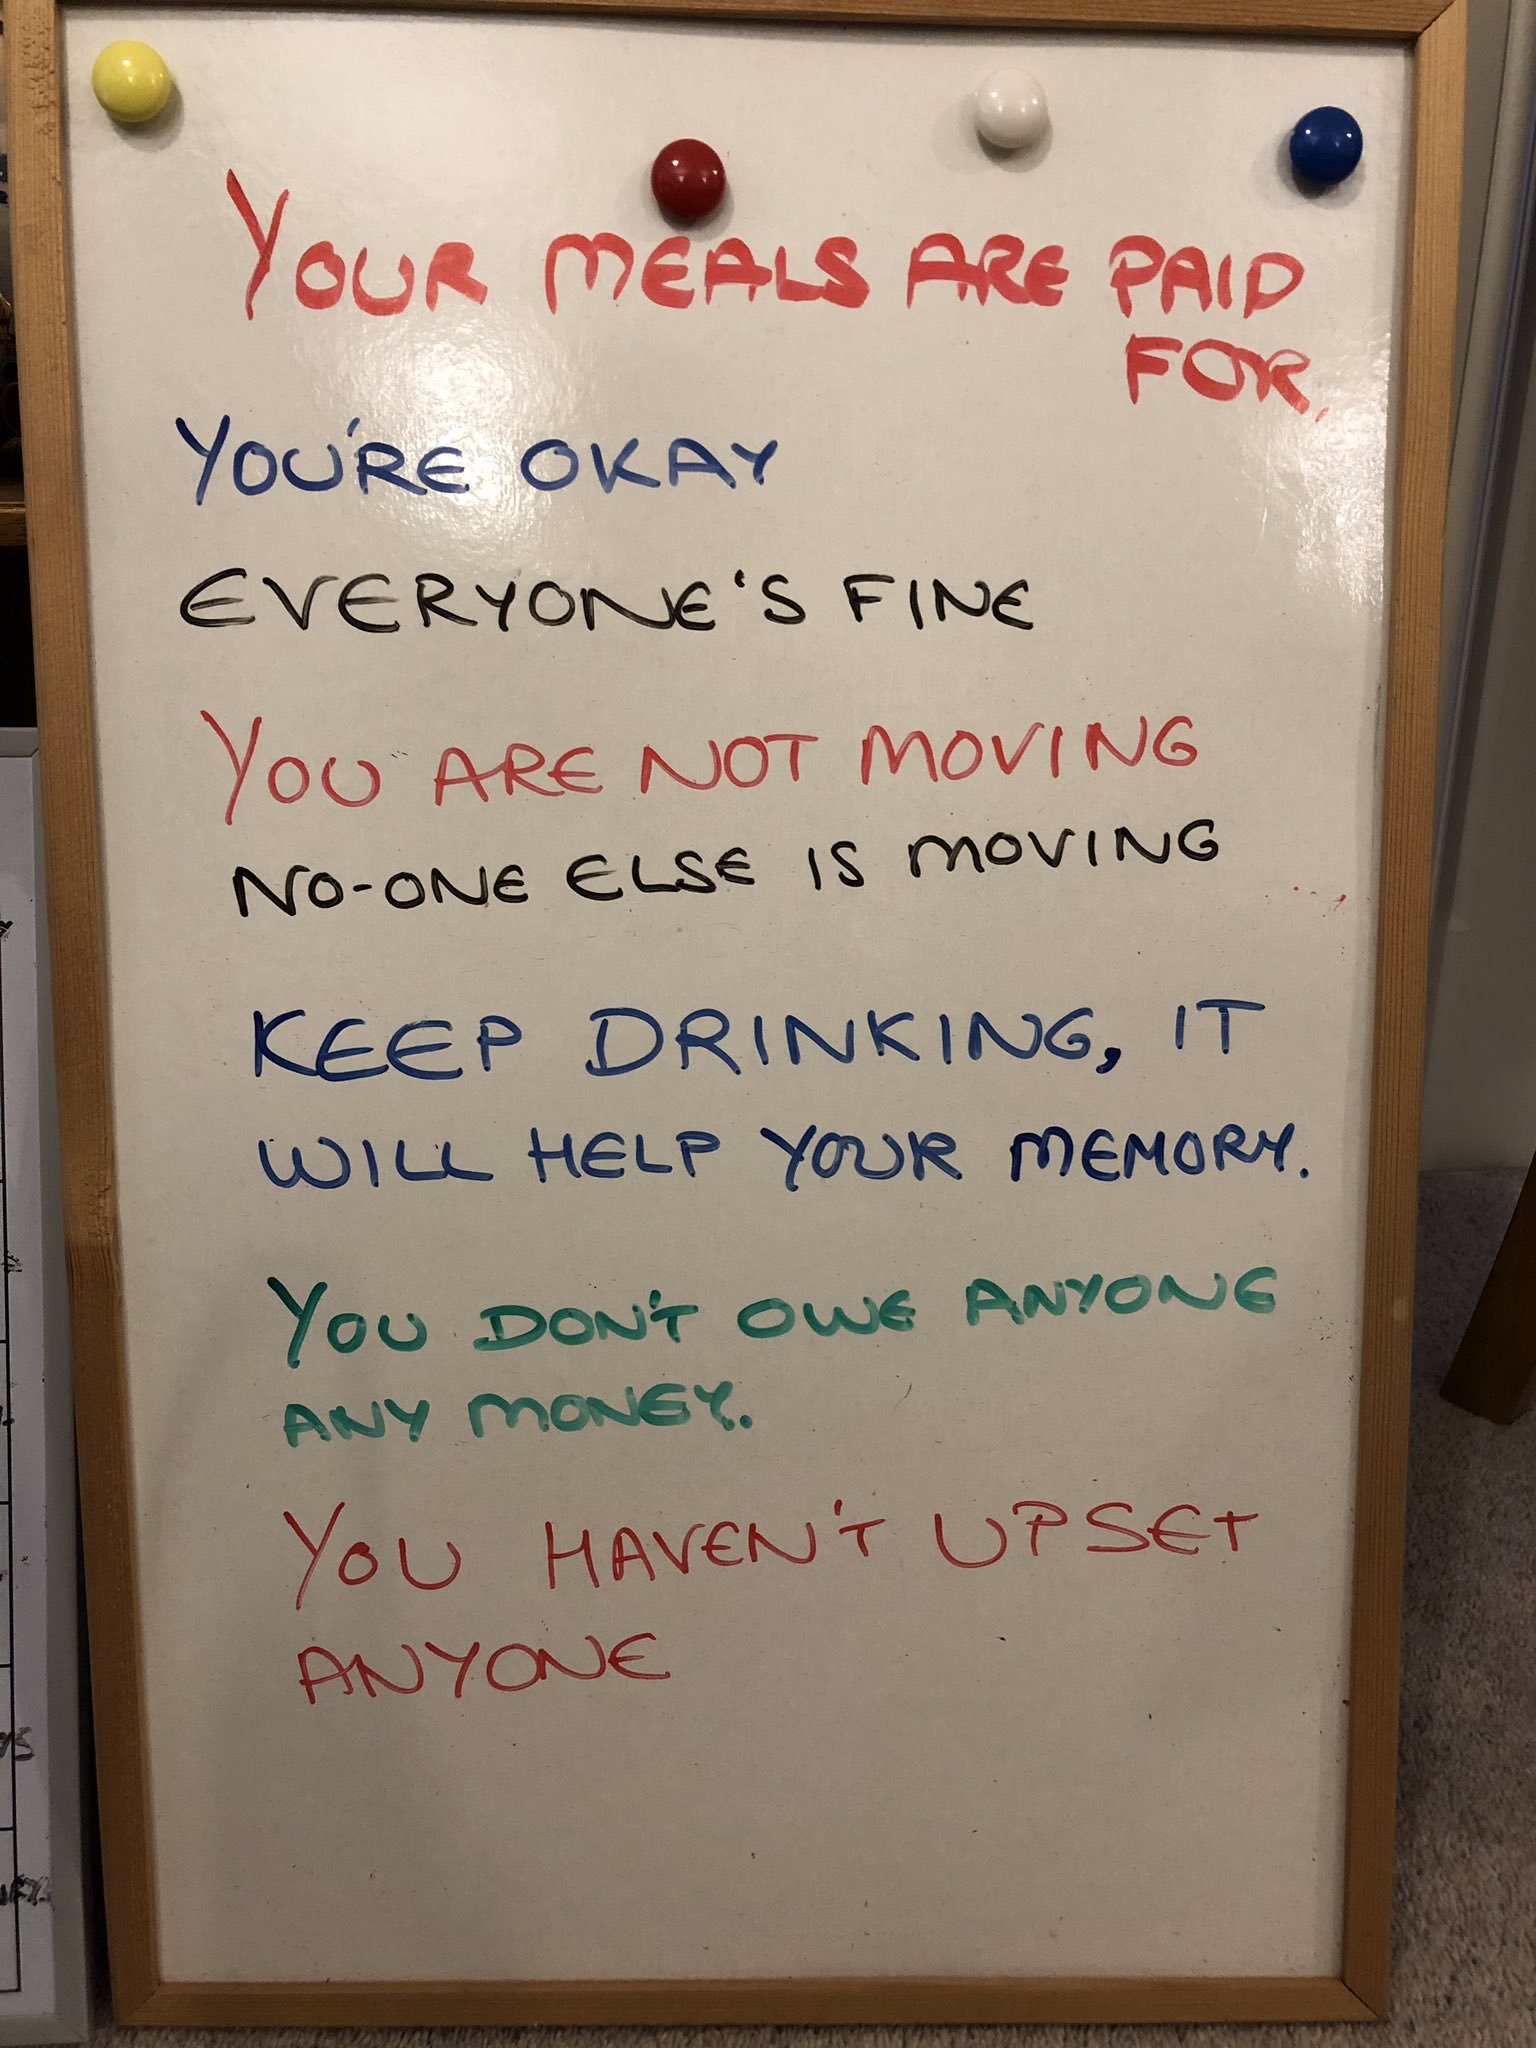 YOUR MEALS ARE PAID
FOR.
YOU'RE OKAY
EVERYONE'S FINE
YOU ARE NOT MOVING
NO-ONE ELSE IS MOVING
KEEP DRINKING, IT
WILL HELP YOUR MEMORY.
YOU DON'T OWE ANYONE
ANY MONEY.
YOU HAVEN'T UPSET
ANYONE